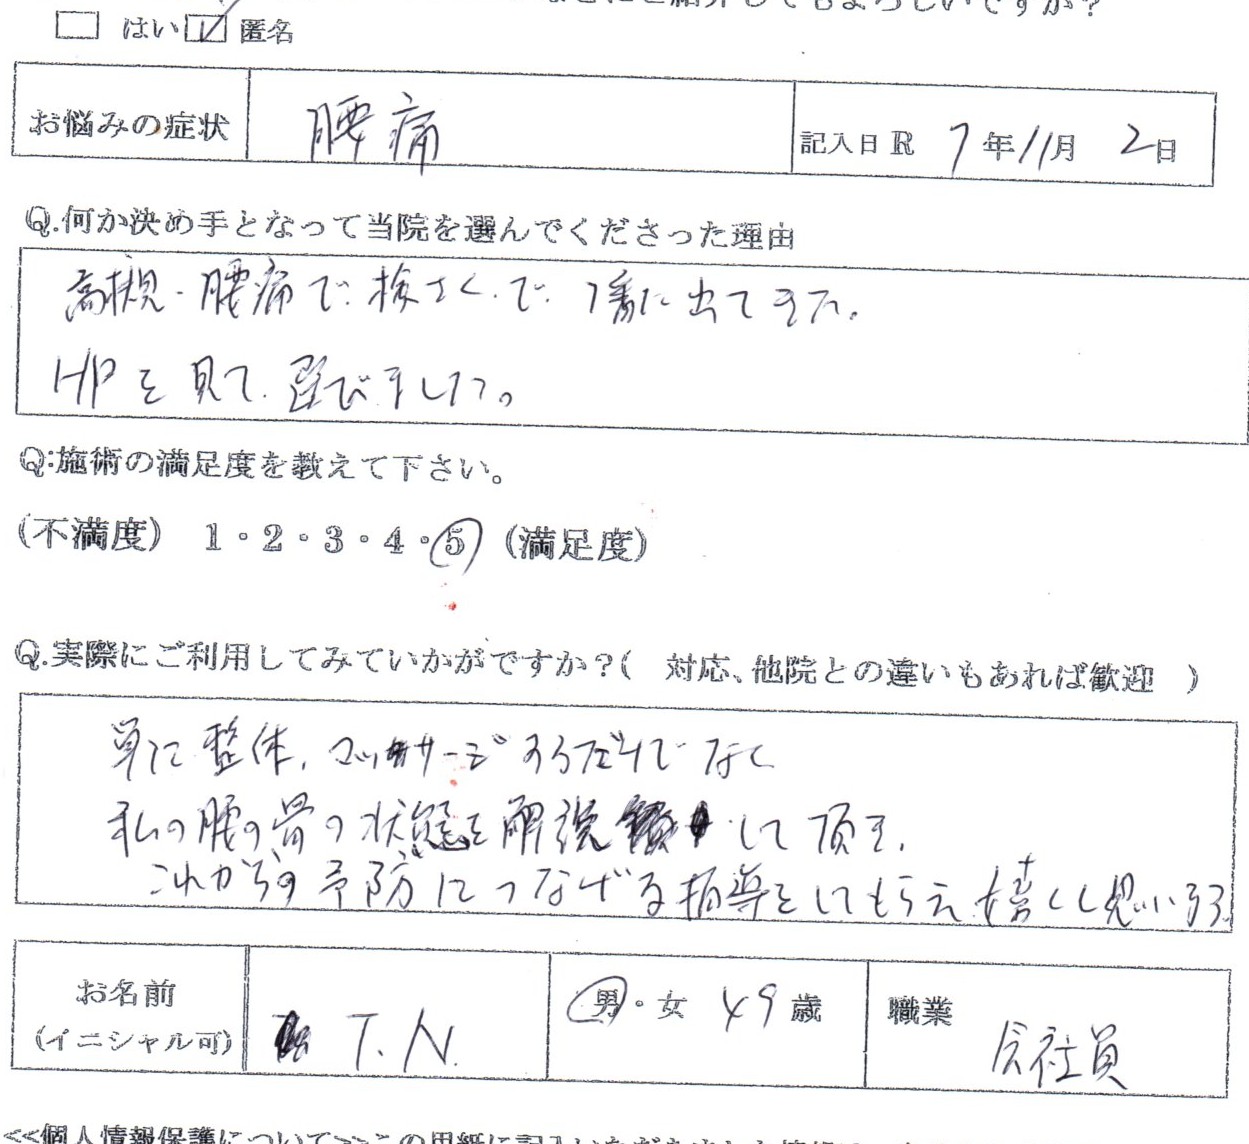 ご紹介してもよろしいですか?
はい 匿名
お悩みの症状 腰痛 記入日R 7年11月 2日
Q.何か決め手となって当院を選んでくださった理由
高槻・腰痛で検さくで1番に出てきた。
HPを見て選びました。
Q:施術の満足度を教えて下さい。
(不満度) 1・2・3・4・5 (満足度)
Q.実際にご利用してみていかがですか?( 対応、他院との違いもあれば歓迎 )
単に整体、マッサージするだけでなく
私の腰の骨の状態を解説して頂き、
これからの予防につなげる指導をしてもらえ嬉しく思います
お名前 T.N. 男・女 49歳 職業
(イニシャル可) 会社員
<<個人情報保護について>>この用紙に記入いただきました情報は、